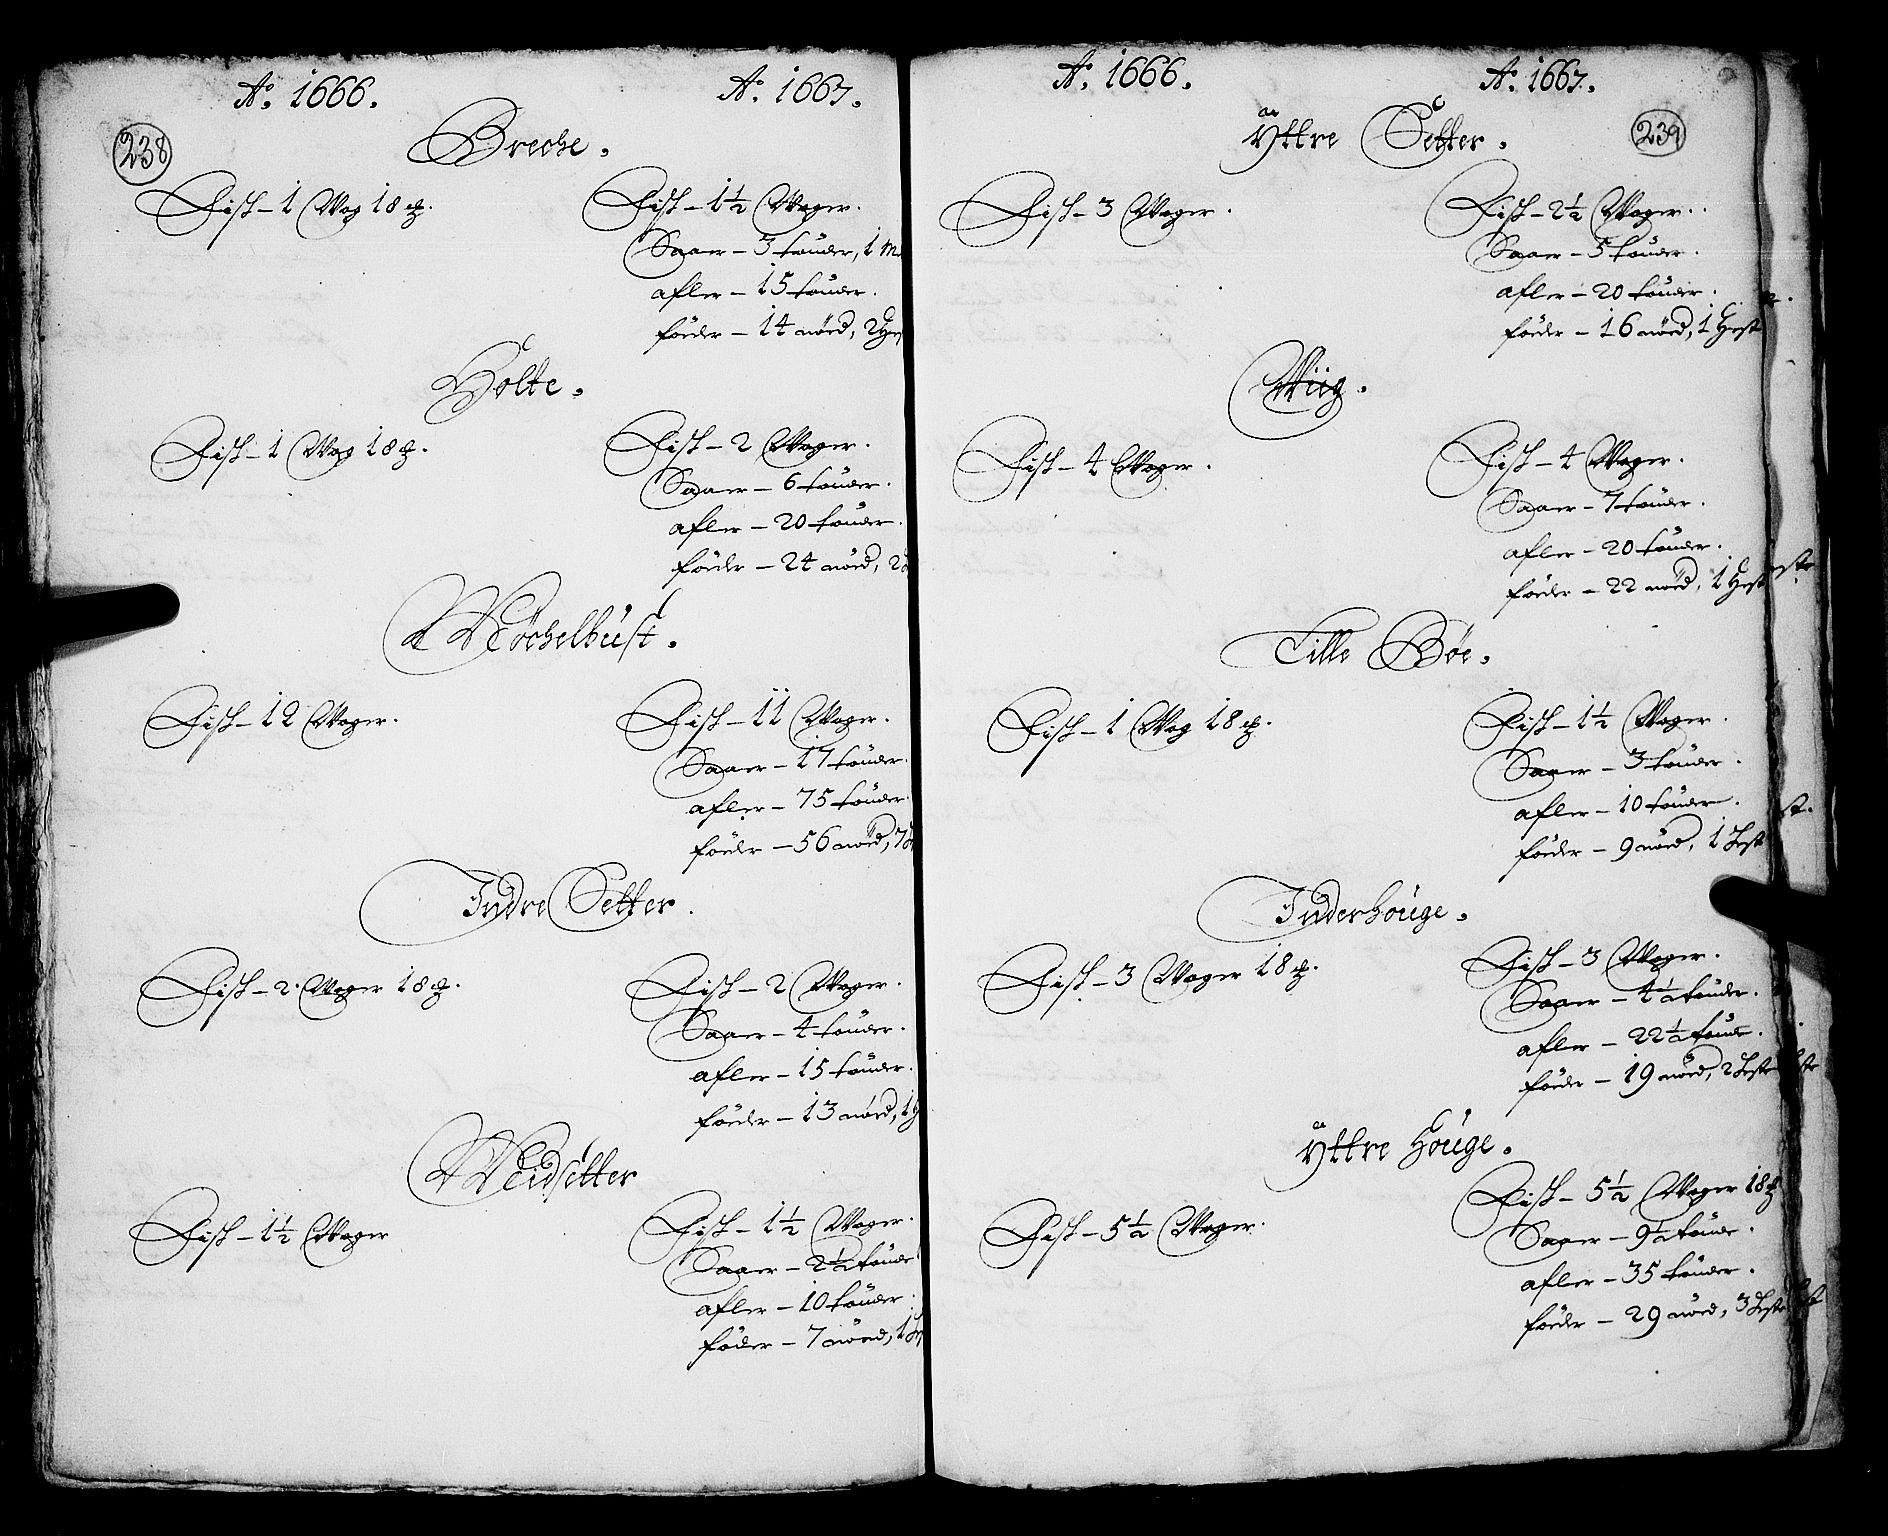 238
Ao. 1666. Ao. 1667.
Breche.
Fisk - 1 Wog 18 ℔. Fisk - 1½ Woger.
Saaer - 3 tønder, 1
afler - 15 tønder.
føeder - 14 nød, 2
Holte.
Fisk - 1 Wog 18 ℔. Fisk - 2 Woger.
Saaer - 6 tønder.
afler - 20 tønder.
føeder - 24 nød, 2
Møchelbust.
Fisk - 12 Woger. Fisk - 11 Woger.
Saaer - 17 tønder.
afler - 75 tønder.
føeder - 56 nød, 7
Indre Setter.
Fisk - 2 Woger 18 ℔. Fisk - 2 Woger.
Saaer - 4 tønder.
afler - 15 tønder.
føeder - 13 nød, 1
Meidsetter
Fisk - 1½ Woger Fisk - 1½ Woger.
Saaer - 2½ tønde
afler - 10 tønder.
føder - 7 nød, 1
239
Ao. 1666. Ao. 1667.
Yttre Setter.
Fisk - 3 Woger. Fisk - 2½ Woger.
Saaer - 5 tønder.
afler - 20 tønder.
føeder - 16 nød, 1 Hest
Wiig.
Fisk - 4 Woger. Fisk - 4 Woger.
Saaer - 7 tønder.
afler - 20 tønder.
føeder - 22 nød, 1 Hest
Lille Bøe.
Fisk - 1 Wog 18 ℔. Fisk - 1½ Woger.
Saaer - 3 tønder.
afler - 10 tønder.
føeder - 9 nød, 1 Hest
Inderhouge.
Fisk - 3 Woger 18 ℔. Fisk - 3 Woger.
Saaer - 4½ tønder.
afler - 22½ tønde.
føeder - 19 nød, 2 Heste
Yttre Houge.
Fisk - 5½ Woger. Fisk - 5½ Woger 18 ℔
Saaer - 9½ tønde.
afler - 35 tønder.
føeder - 29 nød, 3 Heste